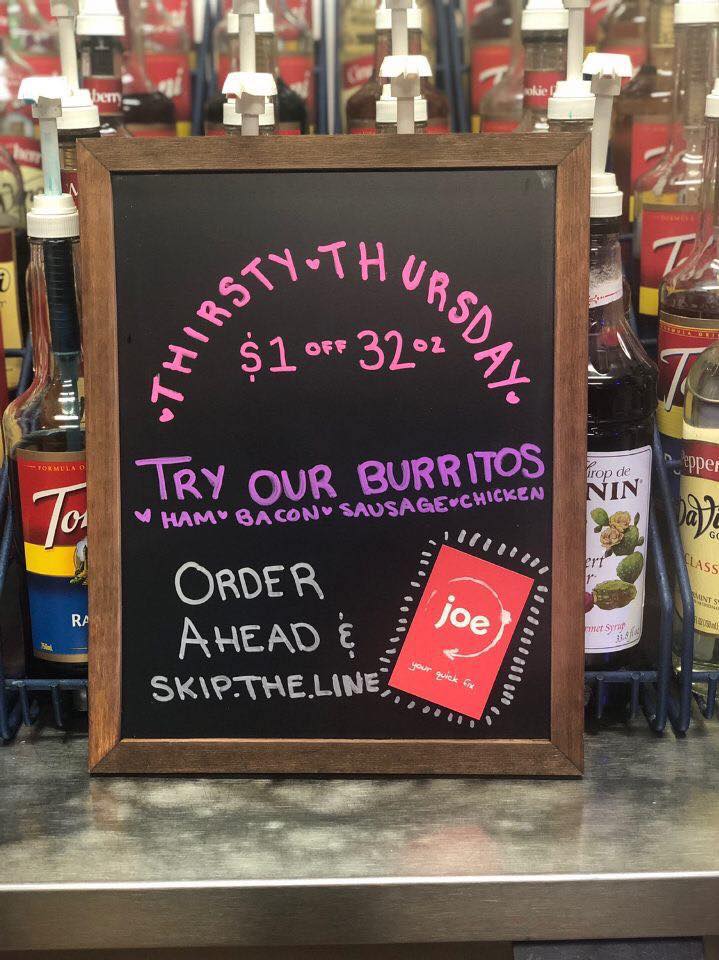 THIRSTY THURSDAY
$1 OFF 32oz
TRY OUR BURRITOS
HAM BACON SAUSAGE CHICKEN
ORDER
AHEAD &
SKIP.THE.LINE
joe
your quick fix
berry
FORMULA O
To
RA
750ml
irop de
NIN
ert
met Syrup
33.8 fl
epper
DaV
CLASS